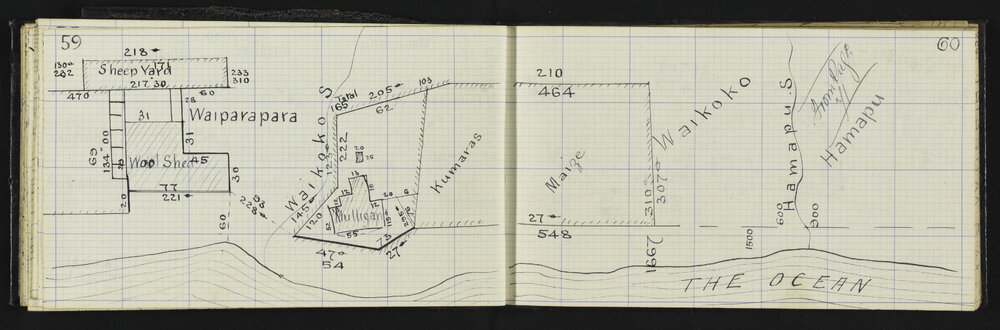 59
218
130°
232
Sheep Yard
171
217.30
233
310
470
60
28
31
Waiparapara
31
69
134°00
20
Wool Shed
45
30
77
221
20
228
60
Waikoko S
Total
165
205
62
103
222
20
25
145
120
13
12
20
6
Mulligan
52
55
73
27
47°
54
Kumaras
210
464
Maize
27
548
310°
307°
Waikoko
1997
1500
600
900
Hamapu S
Hamapu
60
THE OCEAN